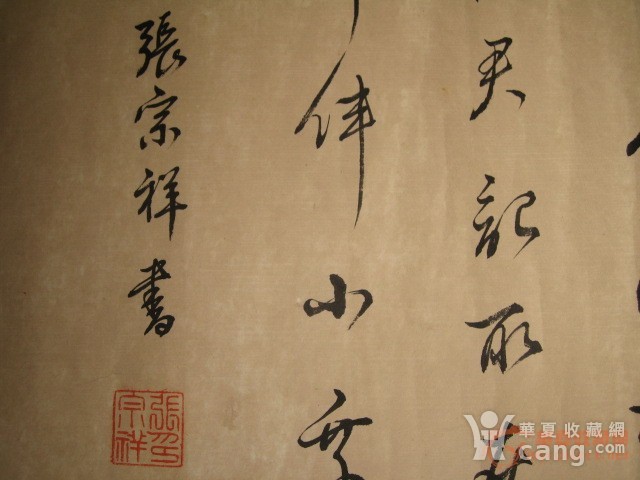 君記取
伴小喬
張宗祥書
張宗祥印
華夏收藏網
cang.com